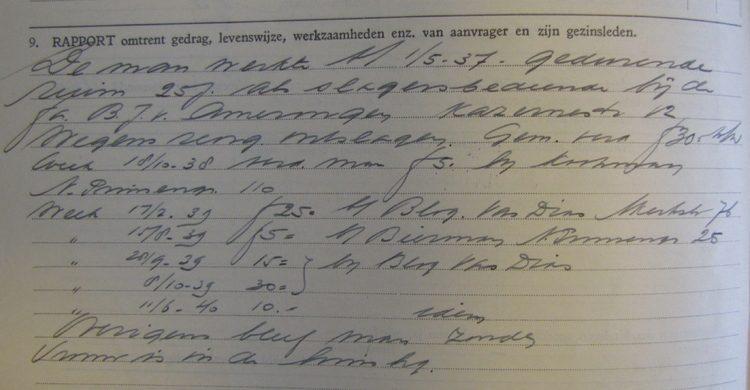 9. RAPPORT omtrent gedrag, levenswijze, werkzaamheden enz. van aanvrager en zijn gezinsleden.
De man werkte t/m 1/5-37. gedurende
ruim 25 j. als slagersbediende bij de
fa. B. J. v. Amerongen Kazernestr 12
Wegens reorg. ontslagen. Gem. verd f 30.-
Week 18/10-38 verd. man f 5.- bij
N. Prinsengr. 110
Week 17/2. 39 f 25.- bij Blog. Vas Dias Merkstr 76
" 15/8-39 f 5 = bij Bierman N. Prinsengr 25
" 28/9-39 15 = } bij Blog Vas Dias
" 8/10-39 30 =
" 11/6-40 10.- idem
Overigens bleef man zonder
Vrouw is in de huish.